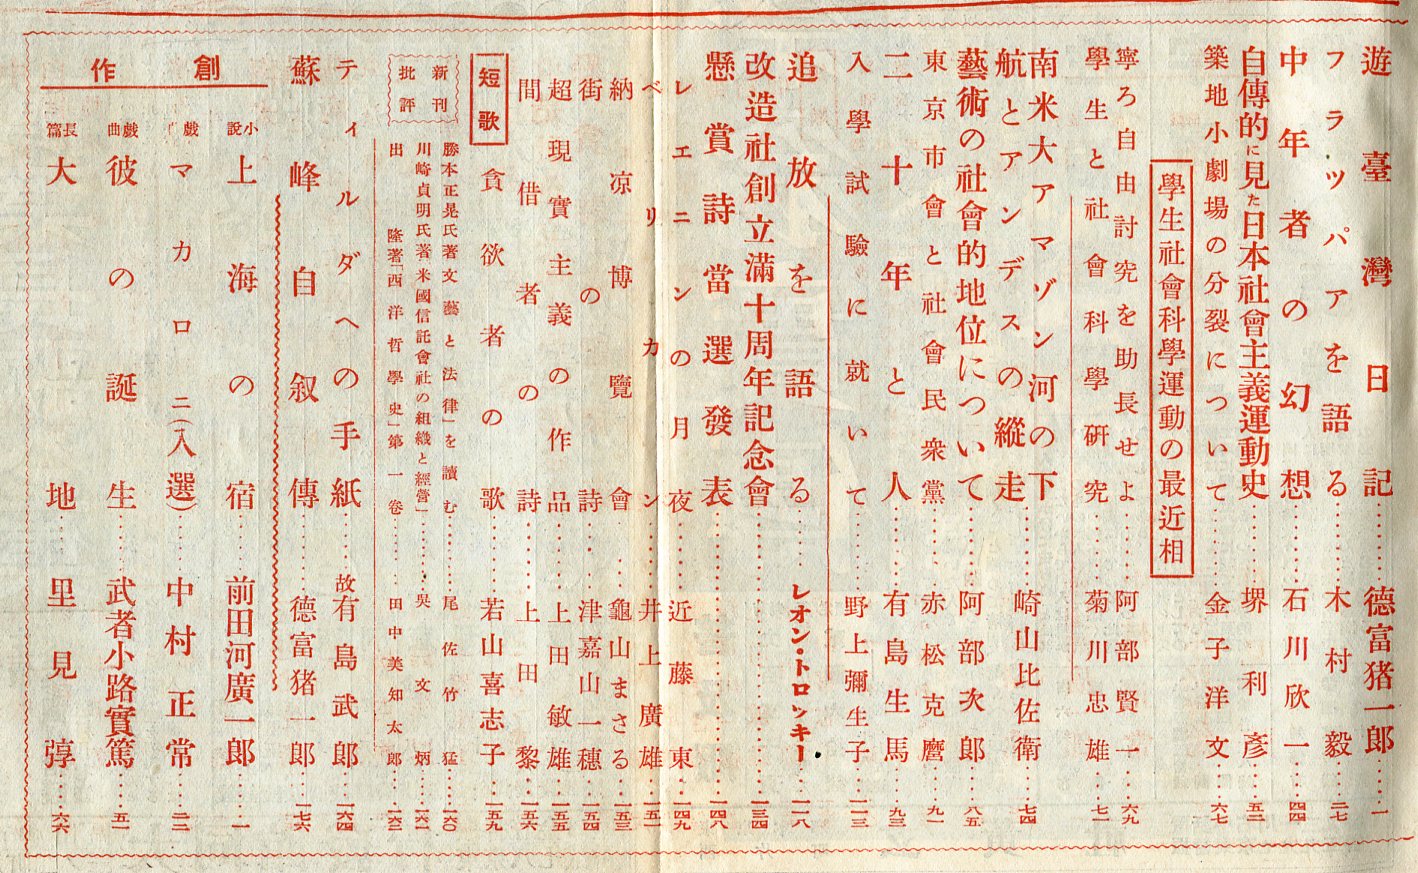 遊臺灣日記……德富猪一郎……一
フラツパアを語る……木村毅……二七
中年者の幻想……石川欣一……四四
自傳的に見た日本社會主義運動史……堺利彥……五三
築地小劇場の分裂について……金子洋文……六七
學生社會科學運動の最近相
寧ろ自由討究を助長せよ……阿部賢一……六九
學生と社會科學硏究……菊川忠雄……七一
南米大アマゾン河の下
航とアンデスの縱走……崎山比佐衛……七四
藝術の社會的地位について……阿部次郎……八五
東京市會と社會民衆黨……赤松克麿……九一
二十年と二人……有島生馬……九三
入學試驗に就いて……野上彌生子……一一三
追放を語る……レオン・トロツキー……一一八
改造社創立滿十周年記念會……一三四
懸賞詩當選發表……一四八
レエニンの月夜……近藤東……一四九
ベリカン……井上廣雄……一五一
納凉博覽會……龜山まさる……一五三
街の詩……津嘉山一穗……一五四
超現實主義の作品……上田敏雄……一五五
間借者の詩……上田黎……一五六
短歌
貪欲者の歌……若山喜志子……一五九
新刊批評
勝本正晃氏著文藝と法律」を讀む……尾佐竹猛……一六〇
川崎貞明氏著米國信託會社の組織と經營」……吳文炳……一六一
出隆著「西洋哲學史」第一卷……田中美知太郞……一六三
ティルダへの手紙……故有島武郎……一六四
蘇峰自叙傳……德富猪一郎……一七六
創作
小說 上海の宿……前田河廣一郎……一
戲曲 マカロニ(二入選)……中村正常……三二
戲曲 彼の誕生……武者小路實篤……五一
長篇 大地……里見弴……六六